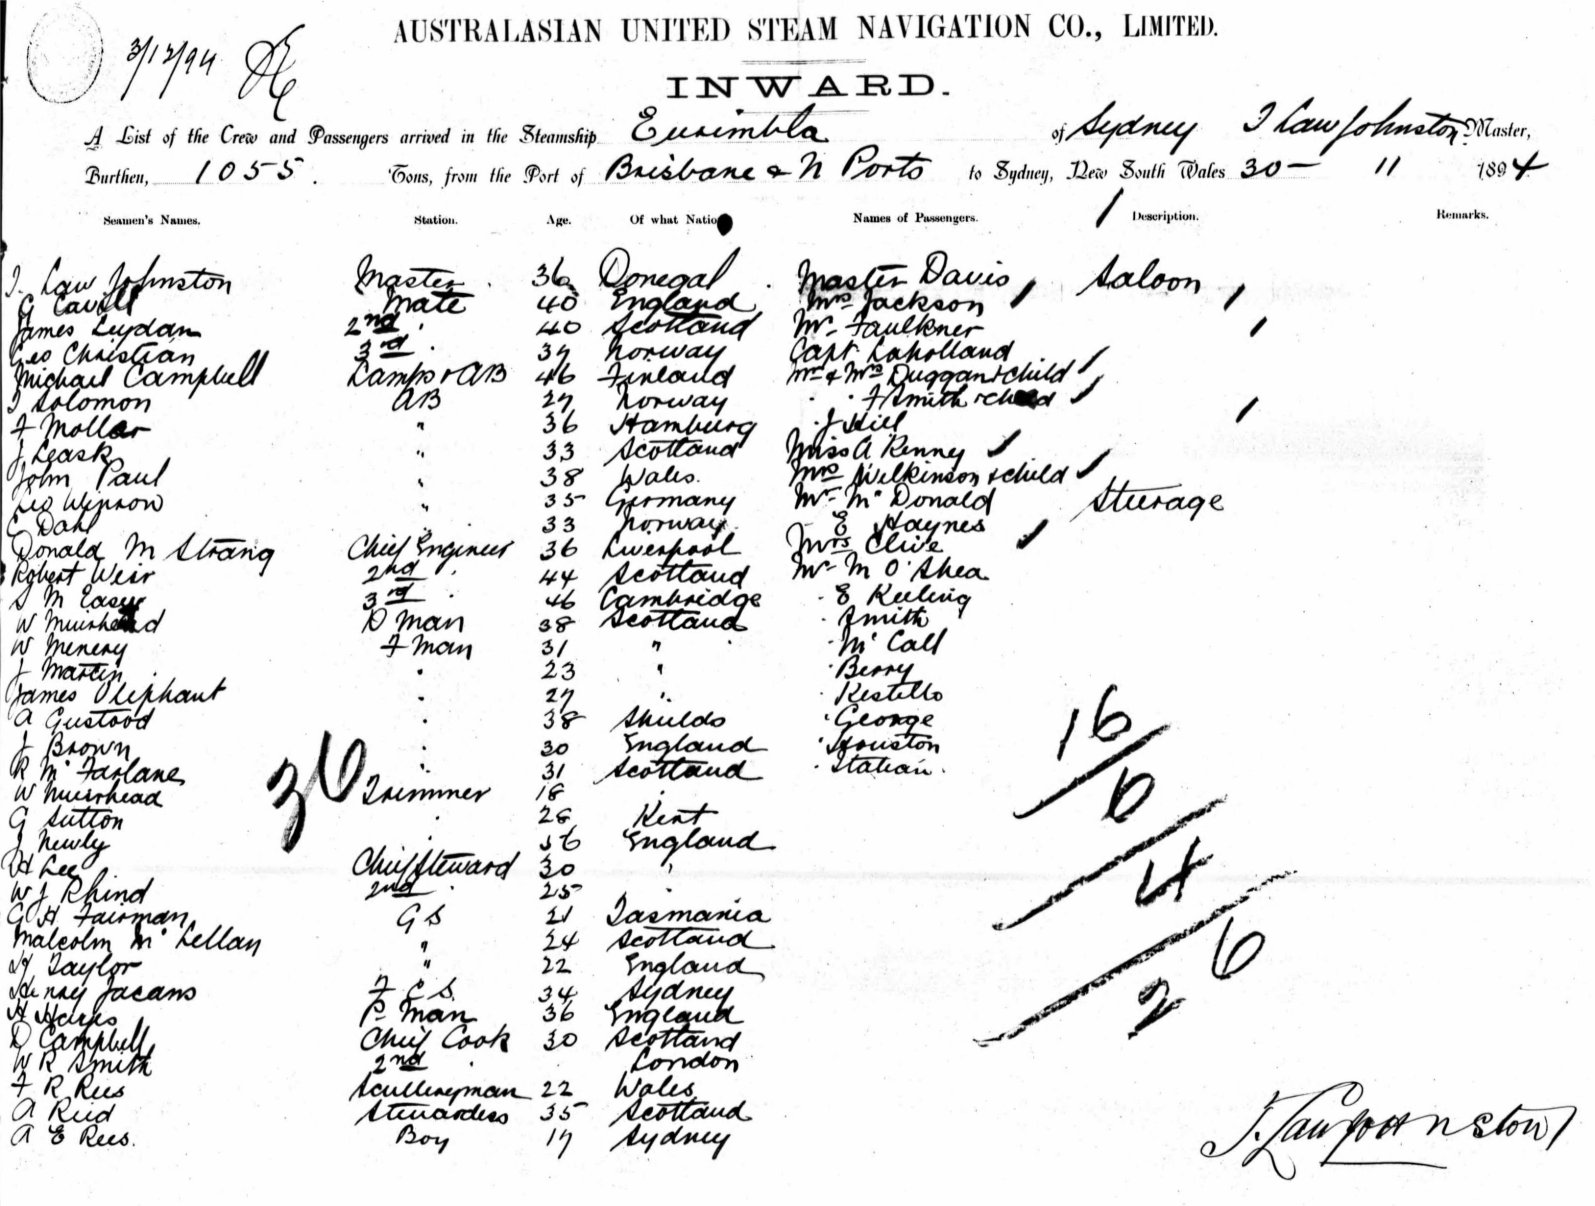 3/12/94
AUSTRALASIAN UNITED STEAM NAVIGATION CO., LIMITED.
INWARD.
A List of the Crew and Passengers arrived in the Steamship Eurimbla of Sydney T Law Johnston Master,
Burthen, 1055. Tons, from the Port of Brisbane & N Ports to Sydney, New South Wales 30 – 11 1894
Seamen's Names. Station. Age. Of what Natio Names of Passengers. Description. Remarks.
T. Law Johnston Master 36 Donegal Master Davis Saloon
G Cavill Mate 40 England Mrs Jackson
James Leydan 2nd " 40 Scotland Mr Faulkner
Geo Christian 3rd " 37 Norway Capt Laholland
Michael Campbell Lamps & AB 46 Finland Mr & Mrs Duggan & child
T Solomon AB 27 Norway " " F Smith & child
F Mollar " 36 Hamburg " J Hill
J Leask " 33 Scotland Miss A Kenny
John Paul " 38 Wales. Mrs Wilkinson & child
Leo " 35 Germany Mr Mc Donald Steerage
C Dahl " 33 Norway. " E Haynes
Donald M Strang Chief Engineer 36 Liverpool Mrs Clive
Robert Weir 2nd " 44 Scotland Mr M O'Shea
S M Easy 3rd " 46 Cambridge " E Keeling
W Muirhead D Man 38 Scotland " Smith
W Menery F Man 31 " " Mc Call
J Martin " 23 " " Berry
James Oliphant " 27 " " Kestello
A Gustood " 38 Shields " George
J Brown " 30 England " Houston
R Mc Farlane " 31 Scotland " Italian.
W Muirhead Trimmer 18 "
G Sutton " 28 Kent
J Newly " 36 England
H Lee Chief Steward 30 "
W J Rhind 2nd " 25 "
G H Fairman G S 21 Tasmania
Malcolm Mc Lellan " 24 Scotland
Taylor " 22 England
Henry Jacans F C S. 34 Sydney
H P Man 36 England
D Campbell Chief Cook 30 Scotland
W R Smith 2nd " London
F R Rees Sculleryman 22 Wales
A Reid Stewardess 35 Scotland
A E Rees. Boy 17 Sydney
36
16
6
4
26
T. Law Johnston